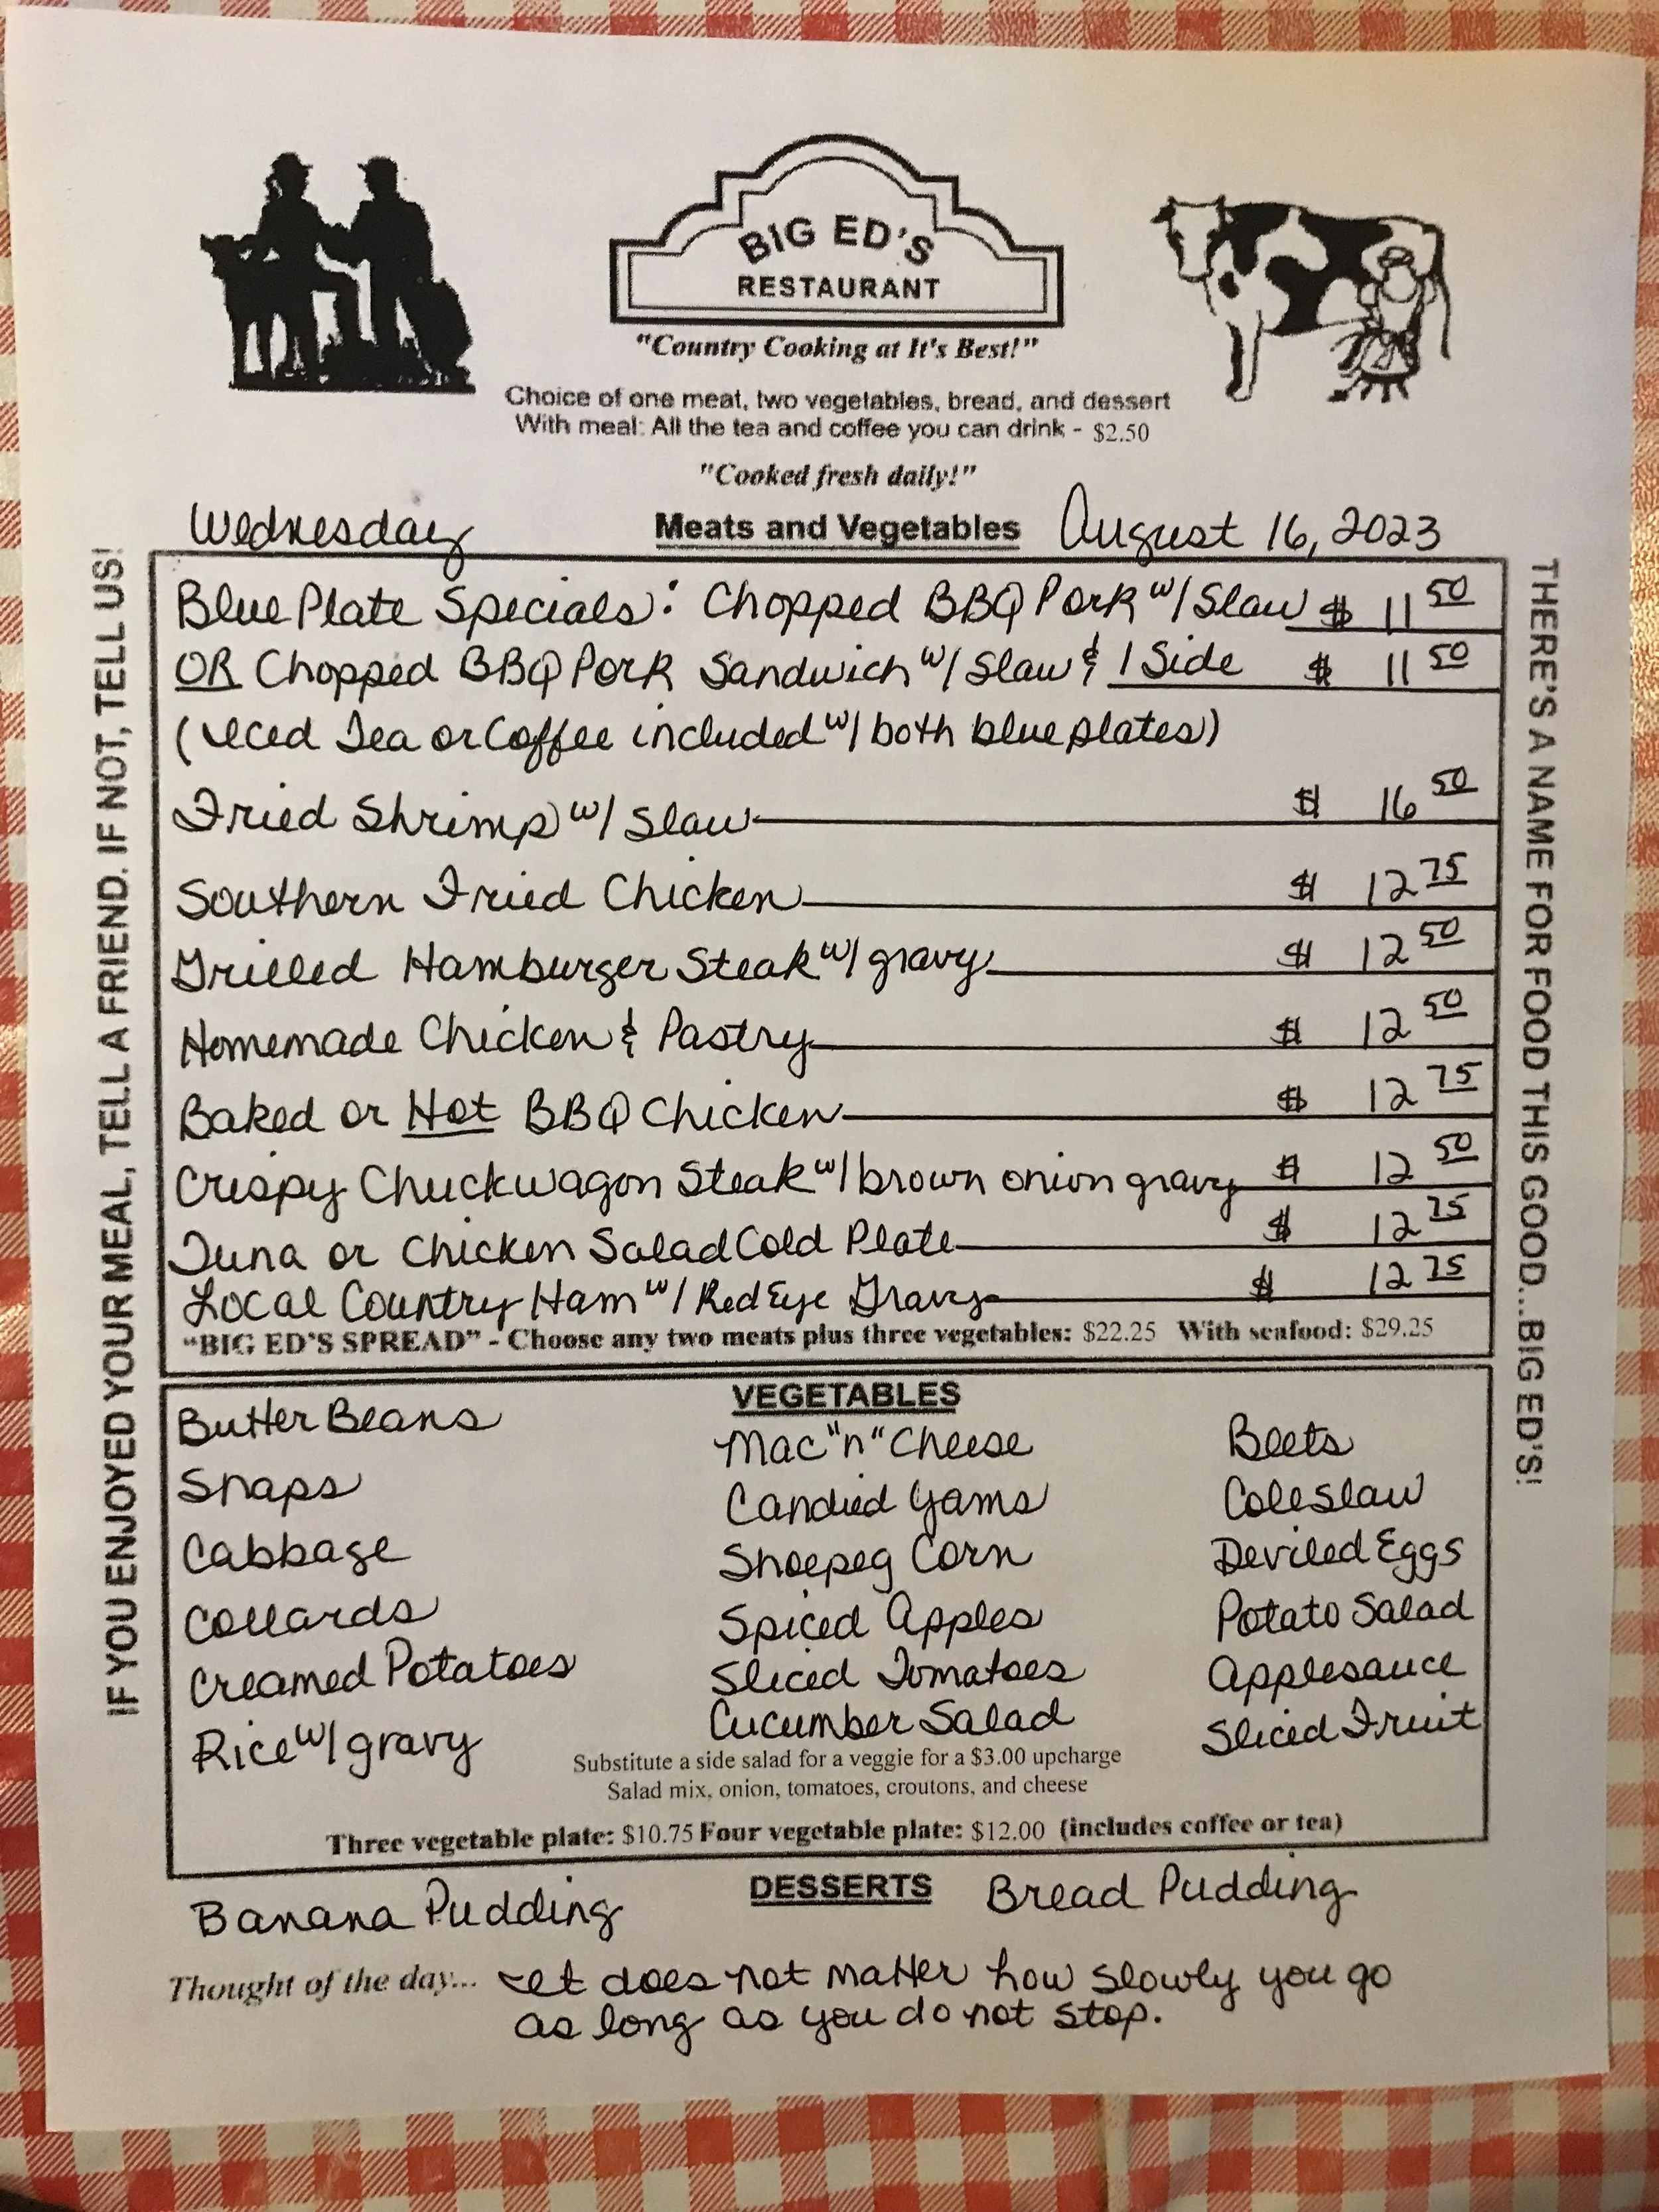 BIG ED'S
RESTAURANT
"Country Cooking at It's Best!"
Choice of one meat, two vegetables, bread, and dessert
With meal: All the tea and coffee you can drink - $2.50
"Cooked fresh daily!"
Wednesday Meats and Vegetables August 16, 2023
Blue Plate Specials: Chopped BBQ Pork w/ Slaw $ 11 50
OR Chopped BBQ Pork Sandwich w/ Slaw & 1 Side $ 11 50
(Iced Tea or Coffee included w/ both blue plates)
Fried Shrimp w/ Slaw $ 16 50
Southern Fried Chicken $ 12 75
Grilled Hamburger Steak w/ gravy $ 12 50
Homemade Chicken & Pastry $ 12 50
Baked or Hot BBQ Chicken $ 12 75
Crispy Chuckwagon Steak w/ brown onion gravy $ 12 50
Tuna or Chicken Salad Cold Plate $ 12 75
Local Country Ham w/ Red Eye Gravy $ 12 75
"BIG ED'S SPREAD" - Choose any two meats plus three vegetables: $22.25 With seafood: $29.25
IF YOU ENJOYED YOUR MEAL, TELL A FRIEND. IF NOT, TELL US!
THERE'S A NAME FOR FOOD THIS GOOD...BIG ED'S!
VEGETABLES
Butter Beans
Snaps
Cabbage
Collards
Creamed Potatoes
Rice w/ gravy
Mac "n" Cheese
Candied Yams
Shoepeg Corn
Spiced Apples
Sliced Tomatoes
Cucumber Salad
Beets
Coleslaw
Deviled Eggs
Potato Salad
Applesauce
Sliced Fruit
Substitute a side salad for a veggie for a $3.00 upcharge
Salad mix, onion, tomatoes, croutons, and cheese
Three vegetable plate: $10.75 Four vegetable plate: $12.00 (includes coffee or tea)
DESSERTS
Banana Pudding
Bread Pudding
Thought of the day... It does not matter how slowly you go
as long as you do not stop.